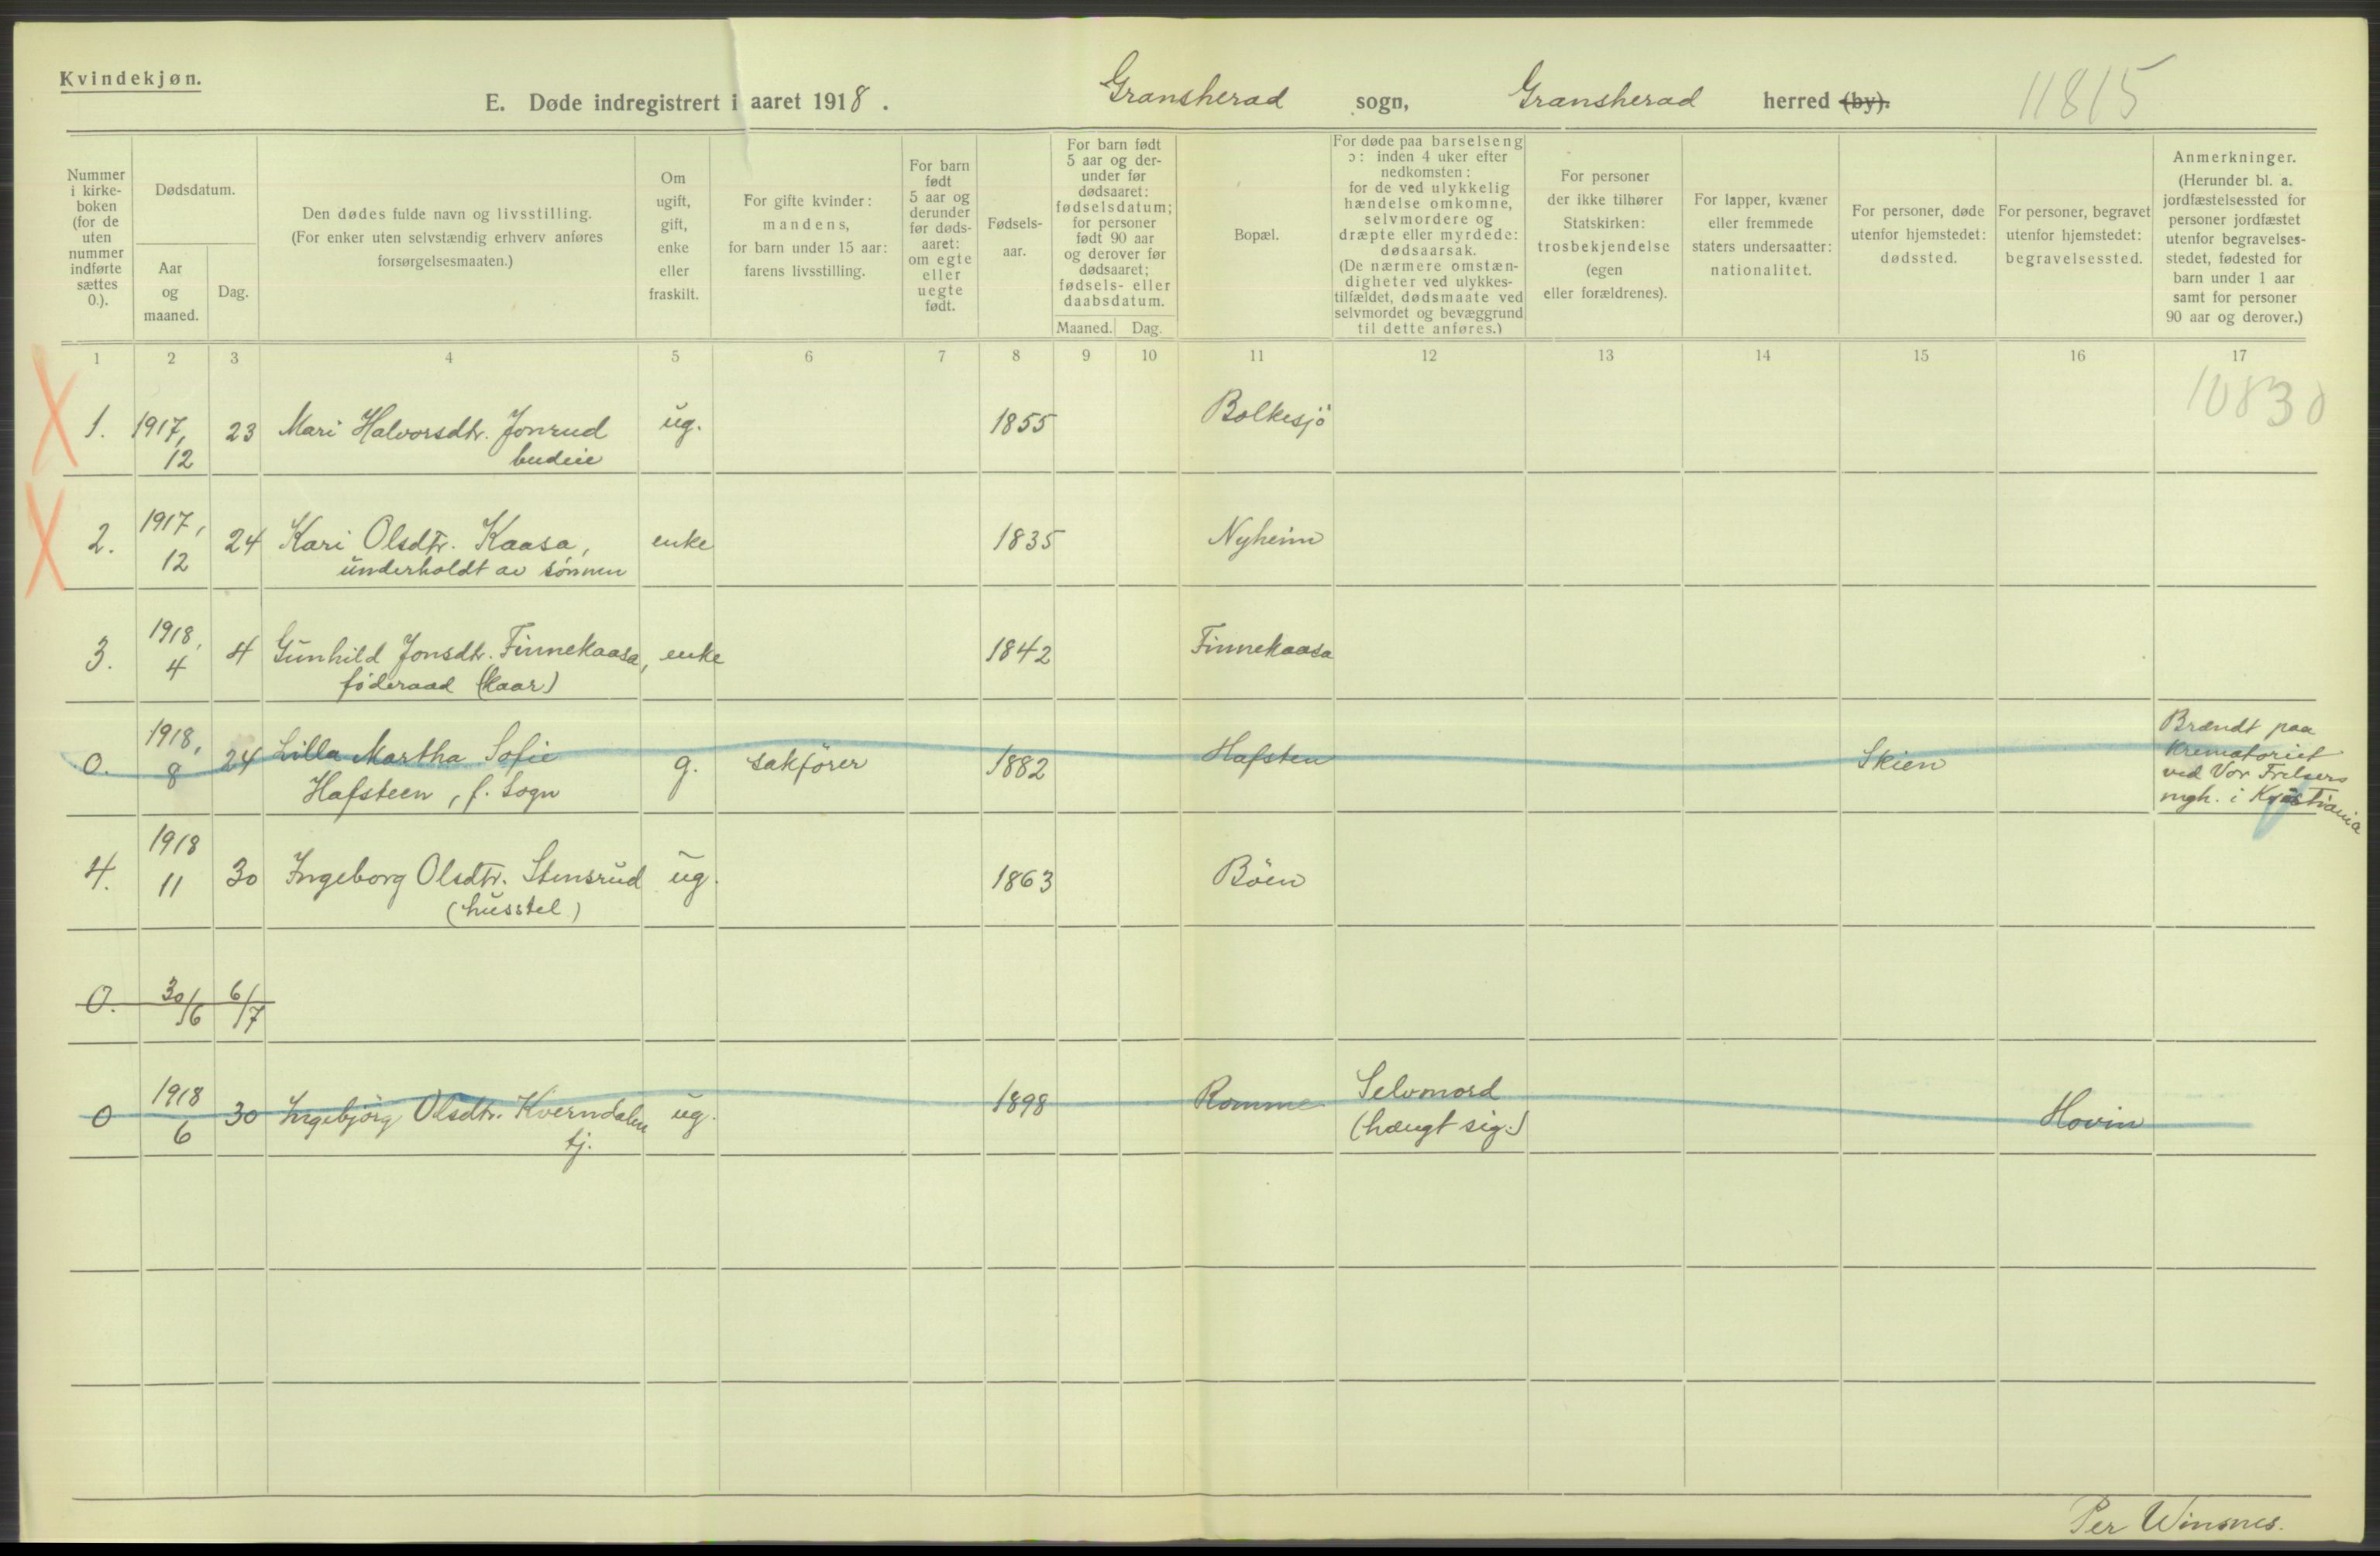 Kvindekjøn.
E. Døde indregistrert i aaret 1918. Gransherad sogn, Gransherad herred (by). 11815
Nummer i kirkeboken (for de uten nummer indførte sættes 0.).
Dødsdatum.
Aar og maaned.
Dag.
Den dødes fulde navn og livsstilling.
(For enker uten selvstændig erhverv anføres
forsørgelsesmaaten.)
Om ugift, gift, enke eller fraskilt.
For gifte kvinder: mandens, for barn under 15 aar: farens livsstilling.
For barn født 5 aar og derunder før dødsaaret: om egte eller uegte født.
Fødselsaar.
For barn født 5 aar og derunder før dødsaaret: fødselsdatum; for personer født 90 aar og derover før dødsaaret; fødsels- eller daabsdatum.
Maaned. Dag.
Bopæl.
For døde paa barselseng ɔ: inden 4 uker efter nedkomsten: for de ved ulykkelig hændelse omkomne, selvmordere og dræpte eller myrdede: dødsaarsak. (De nærmere omstændigheter ved ulykkestilfældet, dødsmaate ved selvmordet og bevæggrund til dette anføres.)
For personer der ikke tilhører Statskirken: trosbekjendelse (egen eller forældrenes).
For lapper, kvæner eller fremmede staters undersaatter: nationalitet.
For personer, døde utenfor hjemstedet: dødssted.
For personer, begravet utenfor hjemstedet: begravelsessted.
Anmerkninger. (Herunder bl. a. jordfæstelsessted for personer jordfæstet utenfor begravelsesstedet, fødested for barn under 1 aar samt for personer 90 aar og derover.)
1 2 3 4 5 6 7 8 9 10 11 12 13 14 15 16 17
10830
1. 1917, 12 23 Mari Halvorsdtr. Jonrud ug. 1855 Bolkesjö
budeie
2. 1917, 12 24 Kari Olsdtr. Kaasa, enke 1835 Nyheim
underholdt av sønnen
3. 1918, 4 4 Gunhild Jonsdtr. Finnekaasa, enke 1842 Finnekaasa
föderaad (kaar)
0. 1918, 8 24 Lilla Martha Sofie g. sakfører 1882 Hafsten Skien Brændt paa
Hafsteen, f. Sogn Krematoriet
ved Vor Frelsers
mgh. i Kristiania
4. 1918 11 30 Ingeborg Olsdtr. Stensrud ug. 1863 Böen
(husstel)
0. 30/6 6/7
0 1918 6 30 Ingebjörg Olsdtr. Kverndalen ug. 1898 Romme Selvmord Hovin
tj. (hængt sig.)
Per Winsnes.